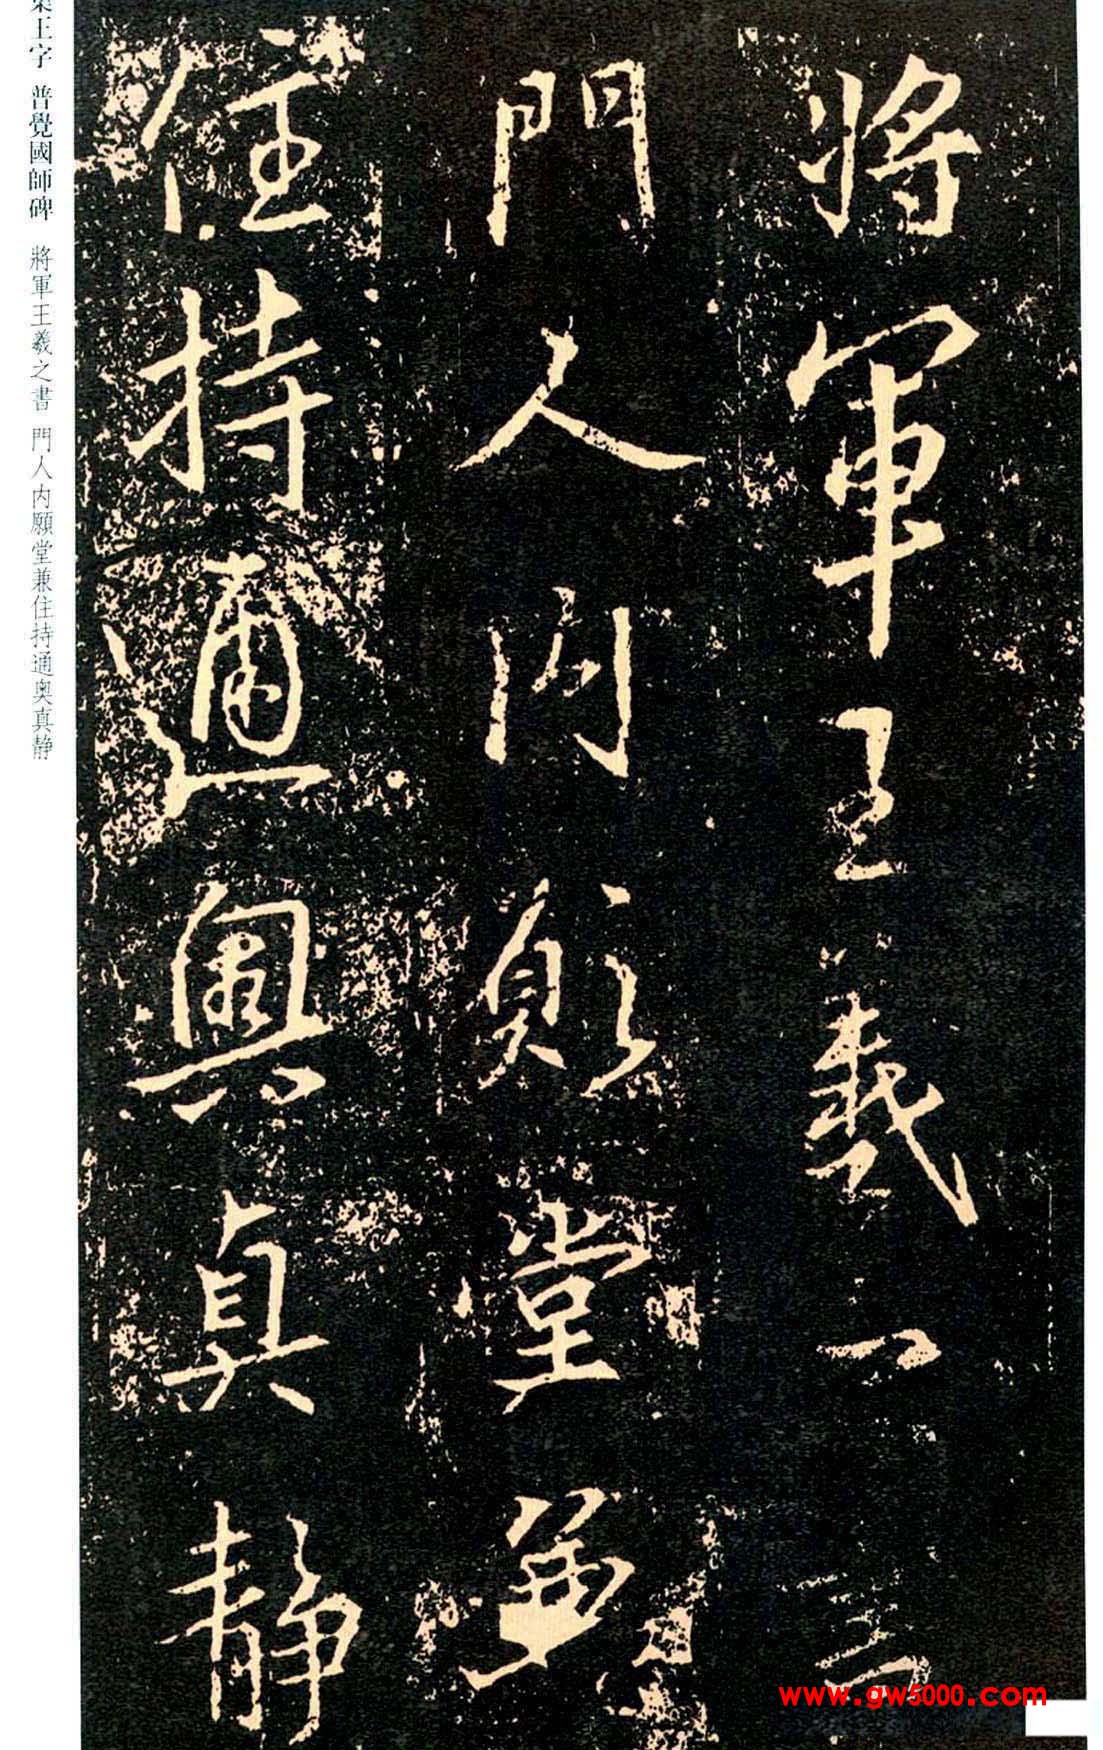 將軍王羲之書
門人内願堂兼
住持通奥真静
王字 普覺國師碑 將軍王羲之書 門人内願堂兼住持通奥真静
www.gw5000.com